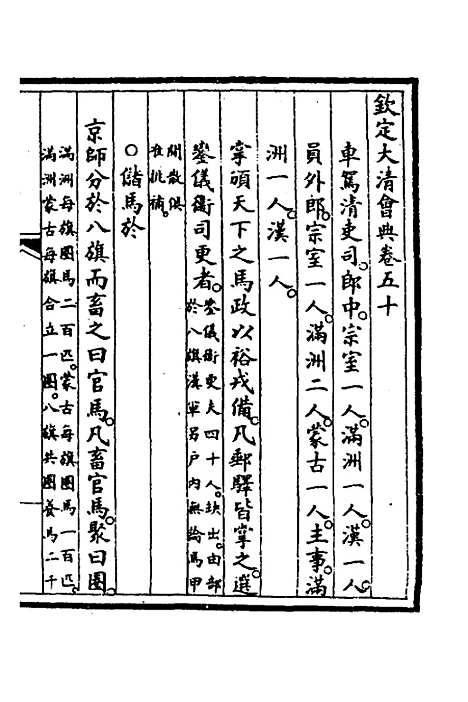 欽定大清會典卷五十
車駕清吏司。郎中。宗室一人。滿洲一人。漢一人。
員外郎。宗室一人。滿洲二人。蒙古一人。主事。滿
洲一人。漢一人。
掌頒天下之馬政以裕戎備。凡郵驛皆掌之。選
鑾儀衛司更者。鑾儀衛更夫四十人。缺出。由部
於八旗漢軍另戶內無論馬甲
閒散俱
准挑補。
○僃馬於
京師分於八旗而畜之曰官馬。凡畜官馬。聚曰圈。
滿洲每旗圈馬二百匹。蒙古每旗圈馬一百匹。
滿洲蒙古每旗合立一圈。八旗共圈養馬二千